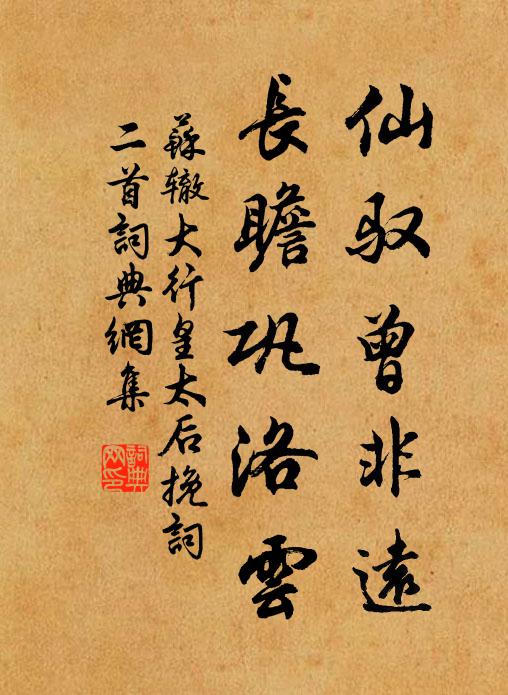 仙驭曾非遠
長瞻巩洛雲
蘇辙大行皇太后挽詞
二首詞典網集
詞典
网印